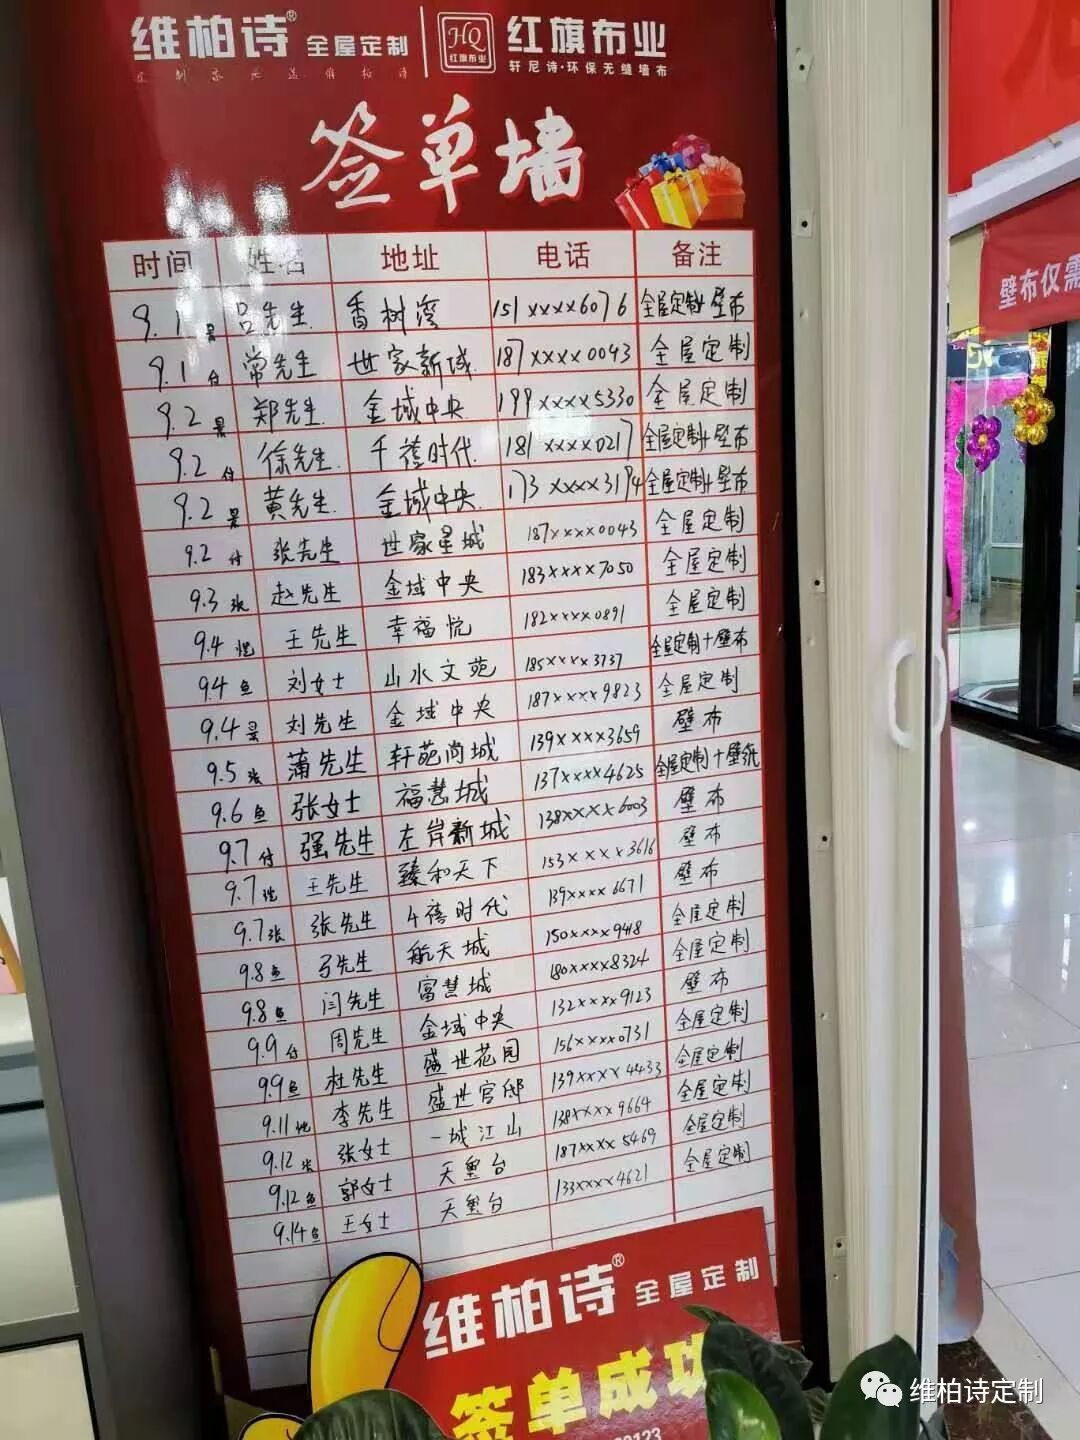 维柏诗® 全屋定制
红旗布业
HQ
红旗布业
轩尼诗·环保无缝墙布
签单墙
时间 姓名 地址 电话 备注
9.1 吕先生 香树湾 151xxxx6076 全屋定制+壁布
9.1 付 常先生 世家新城 187xxxx0043 全屋定制
9.2 郑先生 金域中央 199xxxx5330 全屋定制
9.2 付 徐先生 千禧时代 181xxxx0217 全屋定制+壁布
9.2 黄先生 金域中央 173xxxx3194 全屋定制+壁布
9.2 付 张先生 世家星城 187xxxx0043 全屋定制
9.3 张 赵先生 金域中央 183xxxx7050 全屋定制
9.4 王先生 幸福悦 182xxxx0891 全屋定制
9.4 鱼 刘女士 山水文苑 185xxxx3737 全屋定制+壁布
9.4 刘先生 金域中央 187xxxx9823 全屋定制
9.5 张 蒲先生 轩苑尚城 139xxxx3659 壁布
9.6 鱼 张女士 福慧城 137xxxx4625 全屋定制+壁纸
9.7 付 强先生 左岸新城 138xxxx6003 壁布
9.7 王先生 臻和天下 153xxxx3616 壁布
9.7 张 张先生 千禧时代 139xxxx6671 壁布
9.8 鱼 弓先生 航天城 150xxxx9418 全屋定制
9.8 鱼 闫先生 富慧城 180xxxx8324 全屋定制
9.9 付 周先生 金域中央 132xxxx9123 壁布
9.9 鱼 杜先生 盛世花园 156xxxx0731 全屋定制
9.11 李先生 盛世官邸 139xxxx4433 全屋定制
9.12 张 张女士 一城江山 138xxxx9664 全屋定制
9.12 鱼 郭女士 天玺台 187xxxx5469 全屋定制
9.14 鱼 王女士 天玺台 133xxxx4621 全屋定制
维柏诗® 全屋定制
签单成功
壁布仅需
维柏诗定制